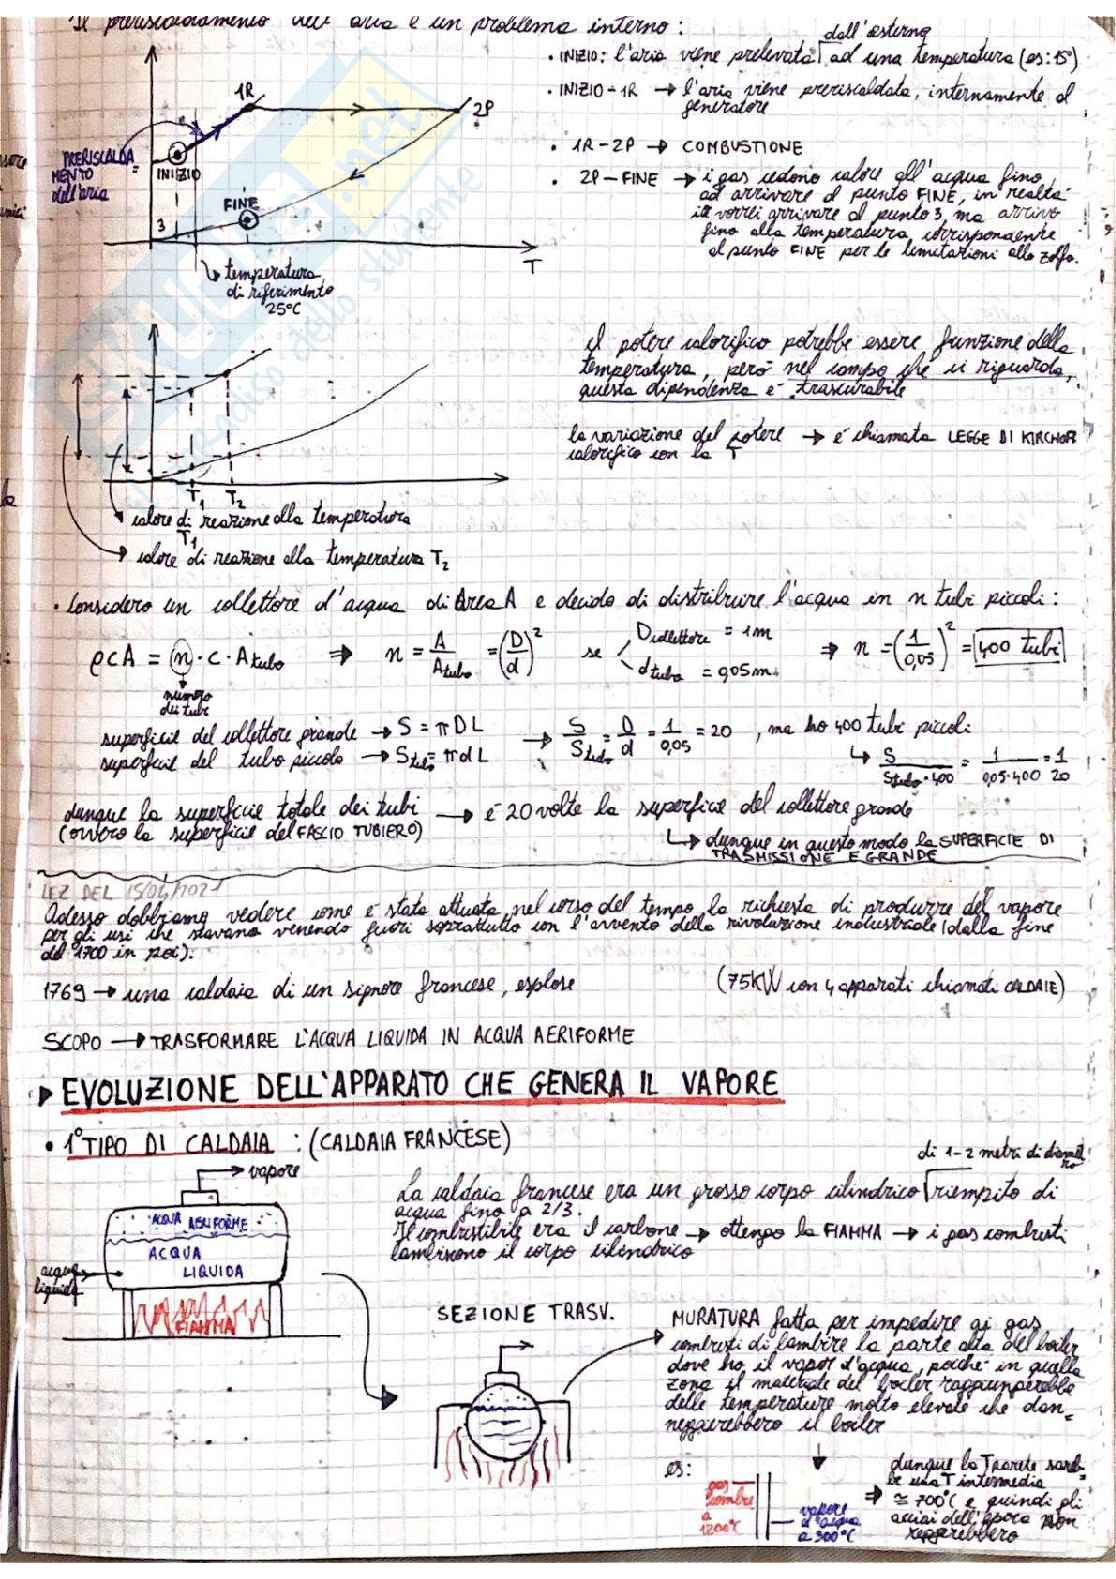 Il preriscaldamento dell'aria è un problema interno:
• INIZIO: l'aria viene prelevata dall'esterno ad una temperatura (es: 15°)
• INIZIO-1R → l'aria viene preriscaldata, internamente al
generatore
• 1R-2P → COMBUSTIONE
• 2P-FINE → i gas cedono calore all'acqua fino
ad arrivare al punto FINE, in realtà
io vorrei arrivare al punto 3, ma arrivo
fino alla temperatura corrispondente
al punto FINE per le limitazioni allo zolfo.
1R
2P
PRERISCALDA
MENTO
dell'aria
=
INIZIO
FINE
3
T
temperatura
di riferimento
25°C
il potere calorifico potrebbe essere funzione della
temperatura, però nel campo che ci riguarda,
questa dipendenza è trascurabile
la variazione del potere → è chiamata LEGGE DI KIRCHOF
calorifico con la T
T1 T2
calore di reazione alla temperatura
T1
calore di reazione alla temperatura T2
• Considero un collettore d'acqua di Area A e decido di distribuire l'acqua in n tubi piccoli:
ρcA = n · c · Atubo ⇒ n = A/Atubo = (D/d)² se Dcollettore = 1m dtubo = 0,05m ⇒ n = (1/0,05)² = 400 tubi
numero
dei tubi
superficie del collettore grande → S = πDL
superficie del tubo piccolo → Stubo = πdL
→ S/Stubo = D/d = 1/0,05 = 20, ma ho 400 tubi piccoli
↳ S/Stubo·400 = 1/0,05·400 = 1/20
dunque la superficie totale dei tubi → è 20 volte la superficie del collettore grande
(ovvero la superficie del FASCIO TUBIERO)
↳ dunque in questo modo la SUPERFICIE DI
TRASMISSIONE È GRANDE
LEZ DEL 15/04/2021
Adesso dobbiamo vedere come è stata attuata nel corso del tempo la richiesta di produrre del vapore
per gli usi che stavano venendo fuori soprattutto con l'avvento della rivoluzione industriale (dalla fine
del 1700 in poi).
1769 → una caldaia di un signore francese, esplose (75KW con 4 apparati chiamati CALDAIE)
SCOPO → TRASFORMARE L'ACQUA LIQUIDA IN ACQUA AERIFORME
▶ EVOLUZIONE DELL'APPARATO CHE GENERA IL VAPORE
• 1° TIPO DI CALDAIA : (CALDAIA FRANCESE)
vapore
ACQUA AERIFORME
ACQUA
LIQUIDA
acqua
liquida
FIAMMA
di 1-2 metri di diame
tro
La caldaia francese era un grosso corpo cilindrico riempito di
acqua fino a 2/3.
Il combustibile era il carbone → ottengo la FIAMMA → i gas combusti
lambiscono il corpo cilindrico
SEZIONE TRASV.
MURATURA fatta per impedire ai gas
combusti di lambire la parte alta del boiler
dove ho il vapor d'acqua, poiché in quella
zona il materiale del boiler raggiungerebbe
delle temperature molto elevate che dan=
neggerebbero il boiler
es:
gas
combu
a
1200°C
vapore
d'acqua
a 300°C
⇒ dunque la Tparete sareb=
be una T intermedia
≅ 700°C e quindi gli
acciai dell'epoca non
reggerebbero